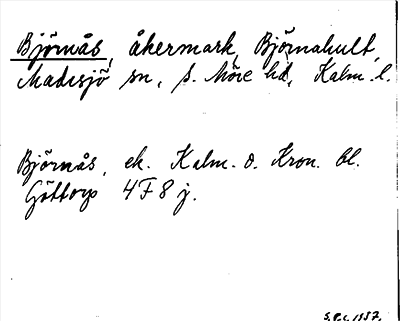 Björnås, åkermark, Björnahult,
Madesjö sn, S. Möre hd, Kalm. l.
Björnås, ek. Kalm. o. Kron. bl.
Göttorp 4F8j.
1957